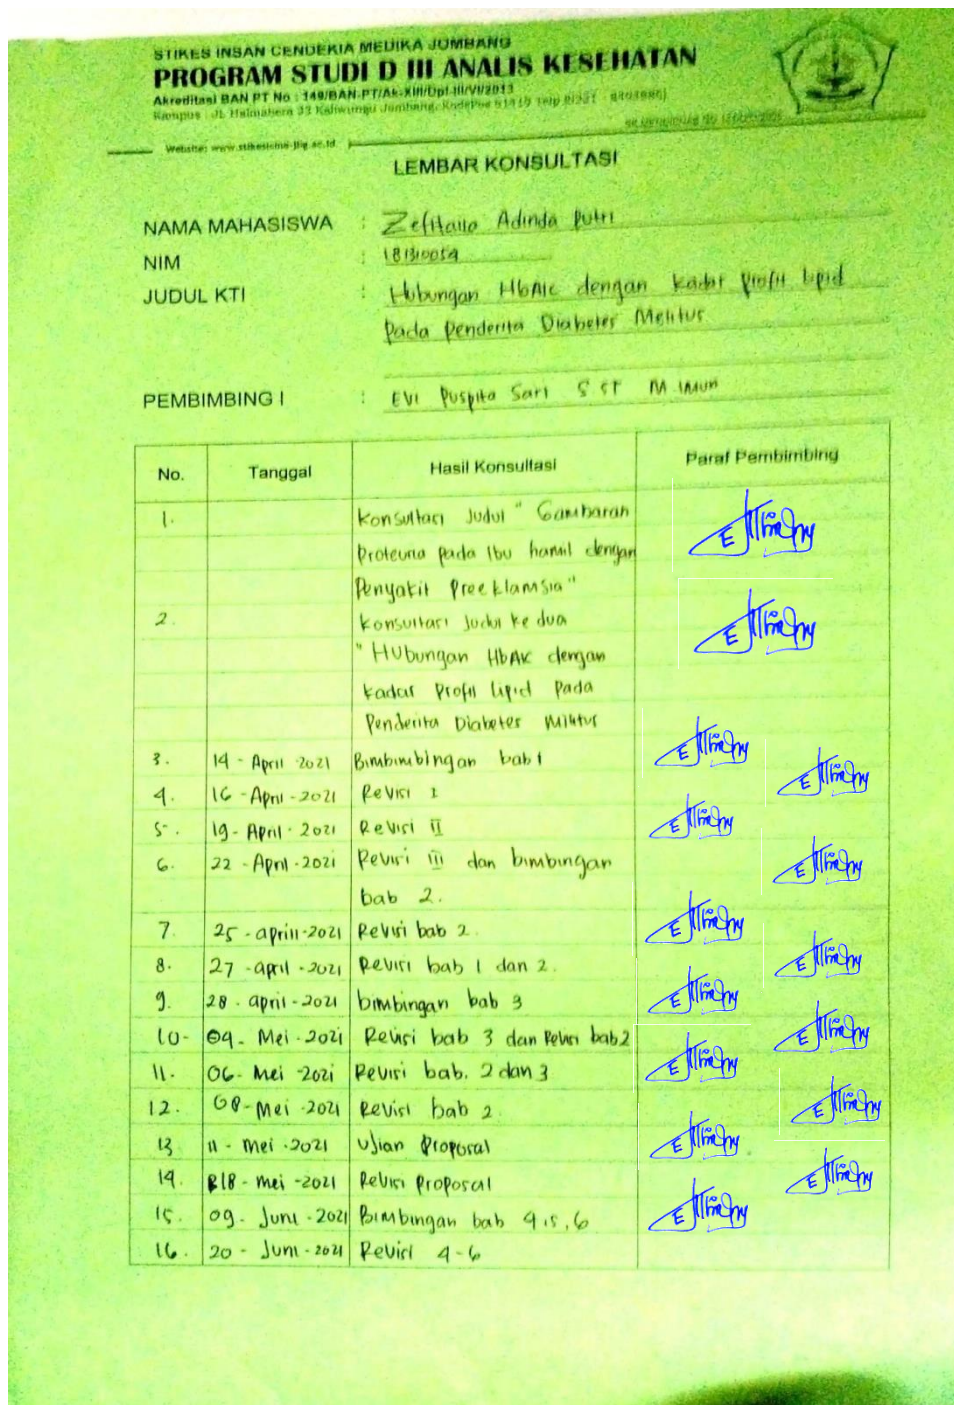 STIKES INSAN CENDEKIA MEDIKA JOMBANG
PROGRAM STUDI D III ANALIS KESEHATAN
Akreditasi BAN PT No : 149/BAN-PT/Ak-XIII/Dpl-III/VI/2013
Kampus : JL Halmahera 33 Kaliwungu Jombang, KodePos 61419 Telp
Website: www.stikesicme-jbg.ac.id
LEMBAR KONSULTASI
NAMA MAHASISWA : Adinda Putri
NIM : 181310054
JUDUL KTI : Hubungan HbA1c dengan kadar profil lipid
pada Penderita Diabetes Melitus
PEMBIMBING I : EVI Puspita Sari S ST M. IMUN
No. Tanggal Hasil Konsultasi Paraf Pembimbing
1. Konsultasi Judul " Gambaran
Proteuria pada Ibu hamil dengan
Penyakit Preeklamsia"
2. Konsultasi Judul ke dua
"Hubungan HbA1c dengan
kadar Profil Lipid Pada
Penderita Diabetes Militus
3. 14 - April - 2021 Bimbimbingan bab 1
4. 16 - April - 2021 Revisi I
5. 19 - April - 2021 Revisi II
6. 22 - April - 2021 Revisi III dan bimbingan
bab 2.
7. 25 - aprill - 2021 Revisi bab 2.
8. 27 - april - 2021 Revisi bab 1 dan 2.
9. 28 - april - 2021 bimbingan bab 3
10- 04 - Mei - 2021 Revisi bab 3 dan Revisi bab 2
11. 06 - Mei - 2021 Revisi bab. 2 dan 3
12. 08 - Mei - 2021 Revisi bab 2
13. 11 - Mei - 2021 Ujian Proposal
14. 18 - mei - 2021 Revisi Proposal
15. 09 - Juni - 2021 Bimbingan bab 4,5,6
16. 20 - Juni - 2021 Revisi 4-6